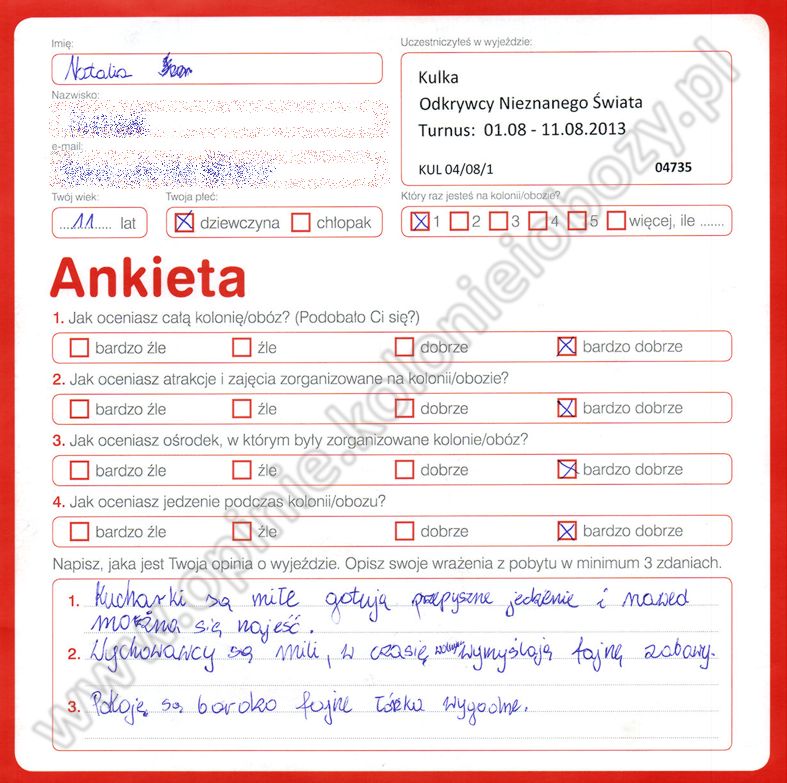 Imię:
Natalia
Nazwisko:
e-mail:
Twój wiek:
....11..... lat
Twoja płeć:
dziewczyna chłopak
Uczestniczyłeś w wyjeździe:
Kulka
Odkrywcy Nieznanego Świata
Turnus: 01.08 - 11.08.2013
KUL 04/08/1 04735
Który raz jesteś na kolonii/obozie?
1 2 3 4 5 więcej, ile .......
Ankieta
1. Jak oceniasz całą kolonię/obóz? (Podobało Ci się?)
bardzo źle źle dobrze bardzo dobrze
2. Jak oceniasz atrakcje i zajęcia zorganizowane na kolonii/obozie?
bardzo źle źle dobrze bardzo dobrze
3. Jak oceniasz ośrodek, w którym były zorganizowane kolonie/obóz?
bardzo źle źle dobrze bardzo dobrze
4. Jak oceniasz jedzenie podczas kolonii/obozu?
bardzo źle źle dobrze bardzo dobrze
Napisz, jaka jest Twoja opinia o wyjeździe. Opisz swoje wrażenia z pobytu w minimum 3 zdaniach.
1. Kucharki są miłe gotują przepyszne jedzenie i nawed
można się najeść.
2. Wychowawcy są mili, w czasię wolnym wymyślają fajnę zabawy.
3. Pokoję są bardzo fajne łóżka wygodne.
www.opinie.kolonieiobozy.pl